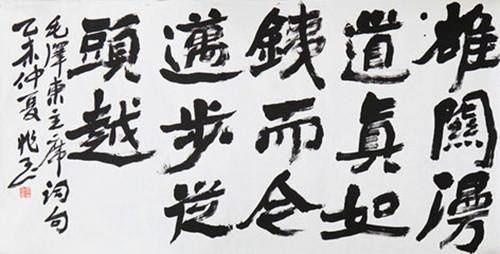 雄闗漫
道真如
銕而今
邁步從
頭越
毛澤東主席词句
乙未仲夏